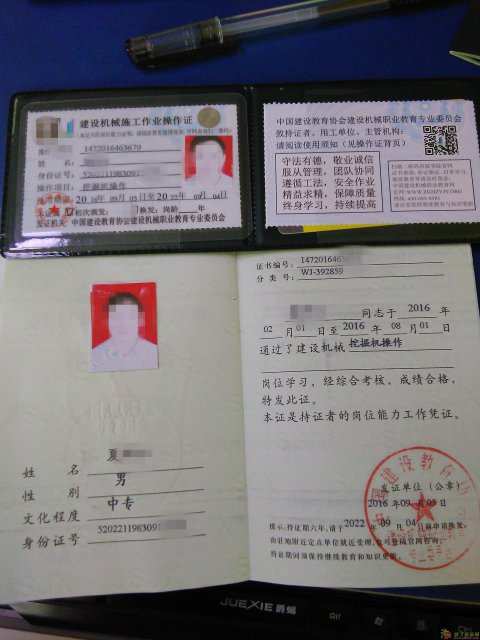 建设机械施工作业操作证
1472016463679
姓名:
身份证号: 5202211983091
操作项目: 挖掘机操作
2016年09月05日至2022年09月04日
初次颁发: 换发: 岗龄 年
发证机关: 中国建设教育协会建设机械职业教育专业委员会
中国建设教育协会建设机械职业教育专业委员会
致持证者、用工单位、主管机构:
请阅读使用须知（见操作证背页）
守法有德，敬业诚信
服从管理，团队协同
遵循工法，安全作业
精益求精，保障质量
终身学习，持续提高
证书编号: 1472016463
分类号: WJ-392859
同志于 2016 年
02 月 01 日至 2016 年 08 月 01 日
通过了建设机械 挖掘机操作
岗位学习，经综合考核，成绩合格，
特发此证。
本证是持证者的岗位能力工作凭证。
发证单位（公章）
2016年09月05日
提示: 持证期六年,请于 2022 年 09 月 04 日前申请换发;
持证期间须保持继续教育和知识更新。
姓名 夏
性别 男
文化程度 中专
身份证号 5202211983091
JUEXIE 爵蝎